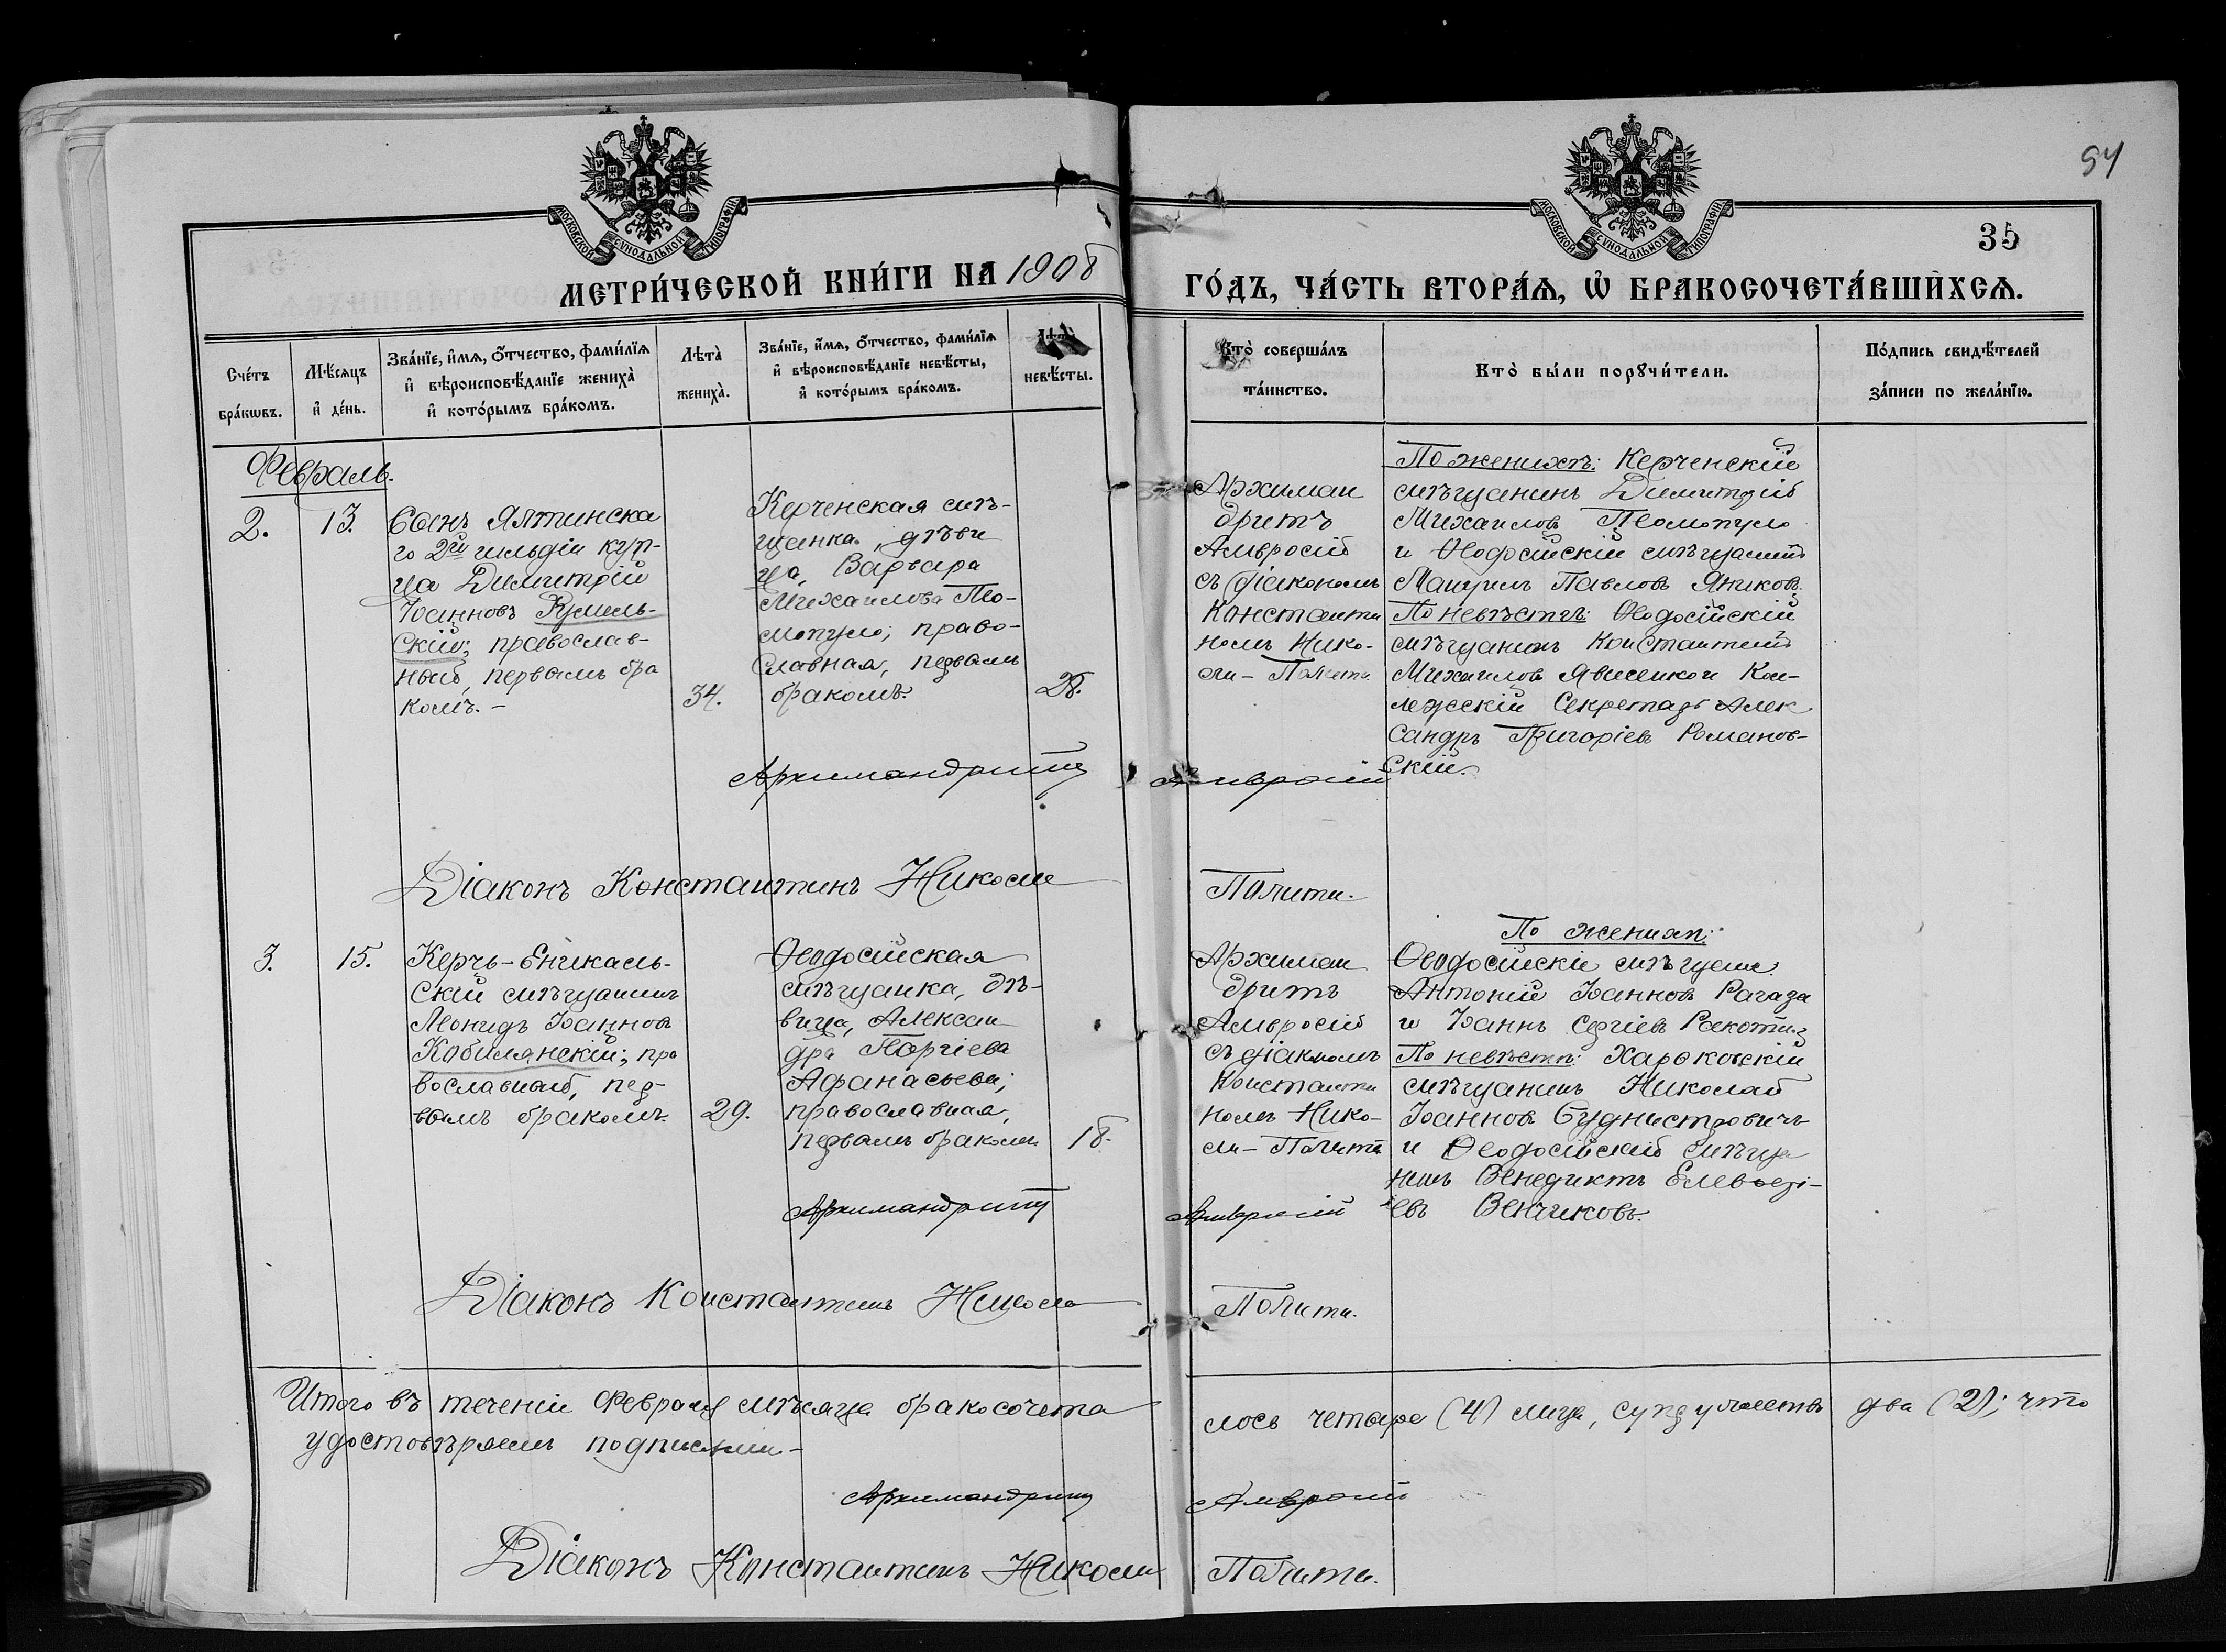 94
МОСКОВСКОЙ СУНОДАЛЬНОЙ ТИПОГРАФІИ
МОСКОВСКОЙ СУНОДАЛЬНОЙ ТИПОГРАФІИ
35
МЕТРИ́ЧЕСКОЙ КНИ́ГИ НА 1908
ГО́ДЪ, ЧА́СТЬ ВТОРА́Ѧ, Ѽ БРАКОСОЧЕТА́ВШИХСѦ.
Сче́тъ
бра́кѡвъ.
Мѣ́сяцъ
и҆ де́нь.
Зва́нїе, и҆́мѧ, ѻ҆́тчество, фами́лїѧ
и҆ вѣроисповѣ́данїе жениха̀
и҆ кото́рымъ бра́комъ.
Лѣта̀
жениха̀.
Зва́нїе, и҆́мѧ, ѻ҆́тчество, фами́лїѧ
и҆ вѣроисповѣ́данїе невѣ́сты,
и҆ кото́рымъ бра́комъ.
Лѣта̀
невѣ́сты.
Кто̀ соверша́лъ
та́инство.
Кто̀ бы́ли порꙋчи́тели.
По́дпись свидѣ́телей
за́писи по жела́нїю.
Февраль.
2.
13.
Сынъ Ялтинска
го 2й гильдіи куп-
ца Димитрій
Іоанновъ Румель-
скій; православ-
ный, первымъ бра
комъ.-
34.
Керченская мѣ-
щанка, дѣви
ца, Варвара
Михаилова Пео-
мопуло; право-
славная, первымъ
бракомъ.
28.
Архиман
дритъ
Амвросій
съ діакономъ
Константи
номъ Нико-
ли- Полити
По женихѣ: Керченскій
мѣщанинъ Димитрій
Михаиловъ Пеомопуло
и Ѳеодосійскій мѣщанинъ
Павловъ Яниковъ
По невѣстѣ: Ѳеодосійскій
мѣщанинъ Константинъ
Михаиловъ и Кол-
лежскій Секретарь Алек
сандръ Григоріевъ Романов-
скій.
Архимандритъ Амвросій
Діаконъ Константинъ Николи Полити.
3.
15.
Керчь-Еникаль-
скій мѣщанинъ
Леонидъ Іоанновъ
Кобилянскій; пра
вославный, пер-
вымъ бракомъ.
29.
Ѳеодосійская
мѣщанка, дѣ-
вица, Алексан
дра Георгіева
Афанасьева;
православная,
первымъ бракомъ
18.
Архиман
дритъ
Амвросій
съ діакономъ
Константи
номъ Нико-
ли- Полити
По женихѣ:
Ѳеодосійскіе мѣщане
Антоній Іоанновъ Рагаза
и Іоаннъ Сергіевъ
По невѣстѣ: Харьковскій
мѣщанинъ Николай
Іоанновъ
и Ѳеодосійскій мѣща
нинъ Венедиктъ Елевѳері-
евъ Венчиковъ.
Архимандритъ Амвросій
Діаконъ Константинъ Николи Полити.
Итого въ теченіи Февраля мѣсяца бракосочета лось четыре (4) лица, супружествъ два (2); что
удостовѣряемъ подписями.-
Архимандритъ Амвросій
Діаконъ Константинъ Николи Полити.